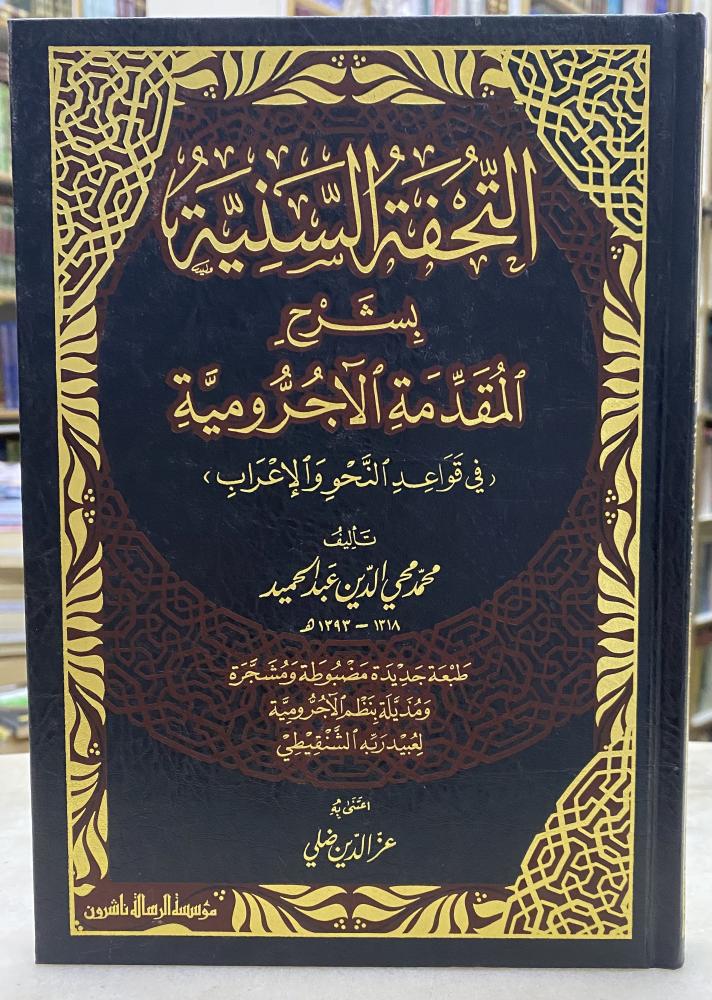 التُّحْفَةُ السَّنِيَّةُ
بِشَرْحِ
المُقَدِّمَةِ الآجُرُّومِيَّةِ
(في قَوَاعِدِ النَّحْوِ وَالإِعْرَابِ)
تَأليفُ
محمّد محيي الدّين عَبد الحميد
١٣١٨ - ١٣٩٣ هـ
طَبْعَة جَدِيْدَة مَضْبُوطَة وَمُشَجَّرَة
وَمُذَيَّلَة بنَظْم الآجُرُّومِيَّة
لِعُبَيْد رَبِّه الشَّنْقِيْطِيّ
اعْتَنَى بِهِ
عزّ الدّين ضلي
مؤسسة الرسالة ناشرون